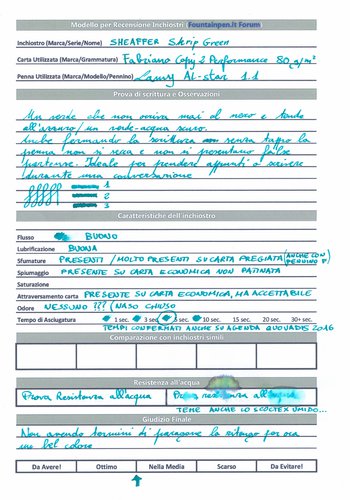 Modello per Recensione Inchiostri (Fountainpen.it Forum)
Inchiostro (Marca/Serie/Nome) SHEAFFER Skrip Green
Carta Utilizzata (Marca/Grammatura) Fabriano Copy 2 Performance 80 g/m²
Penna Utilizzata (Marca/Modello/Pennino) Lamy Al-star 1.1
Prova di scrittura e Osservazioni
Un verde che non arriva mai al nero e tende
all'azzurro/un verde-acqua scuro.
Anche fermando la scrittura senza tappo la
penna non si secca e non si presentano false
partenze. Ideale per prendere appunti o scrivere
durante una conversazione
1
2
3
Caratteristiche dell'inchiostro
Flusso BUONO
Lubrificazione BUONA
Sfumature PRESENTI/MOLTO PRESENTI SU CARTA PREGIATA (ANCHE CON PENNINO F)
Spiumaggio PRESENTE SU CARTA ECONOMICA NON PATINATA
Saturazione
Attraversamento carta PRESENTE SU CARTA ECONOMICA, MA ACCETTABILE
Odore NESSUNO ??? (NASO CHIUSO
Tempo di Asciugatura 1 sec. 3 sec. 5 sec. 10 sec. 15 sec. 20 sec. 30+ sec.
TEMPI CONFERMATI ANCHE SU AGENDA QUOVADIS 2016
Comparazione con inchiostri simili
Resistenza all'acqua
Prova Resistenza all'acqua Prova resistenza all'acqua
TEME ANCHE LO SCOTTEX UMIDO...
Giudizio Finale
Non avendo termini di paragone lo ritengo per ora
un bel colore
Da Avere! Ottimo Nella Media Scarso Da Evitare!